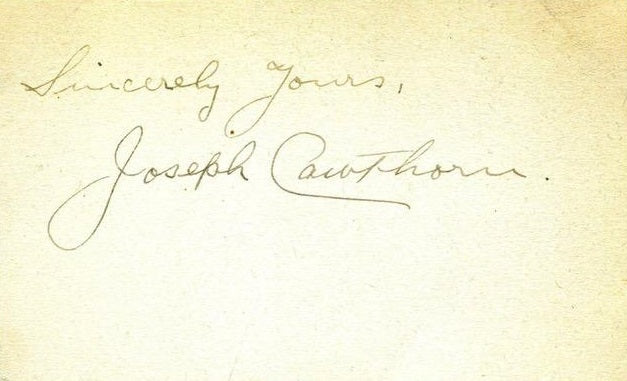 Sincerely Yours,
Joseph Cawthorn.